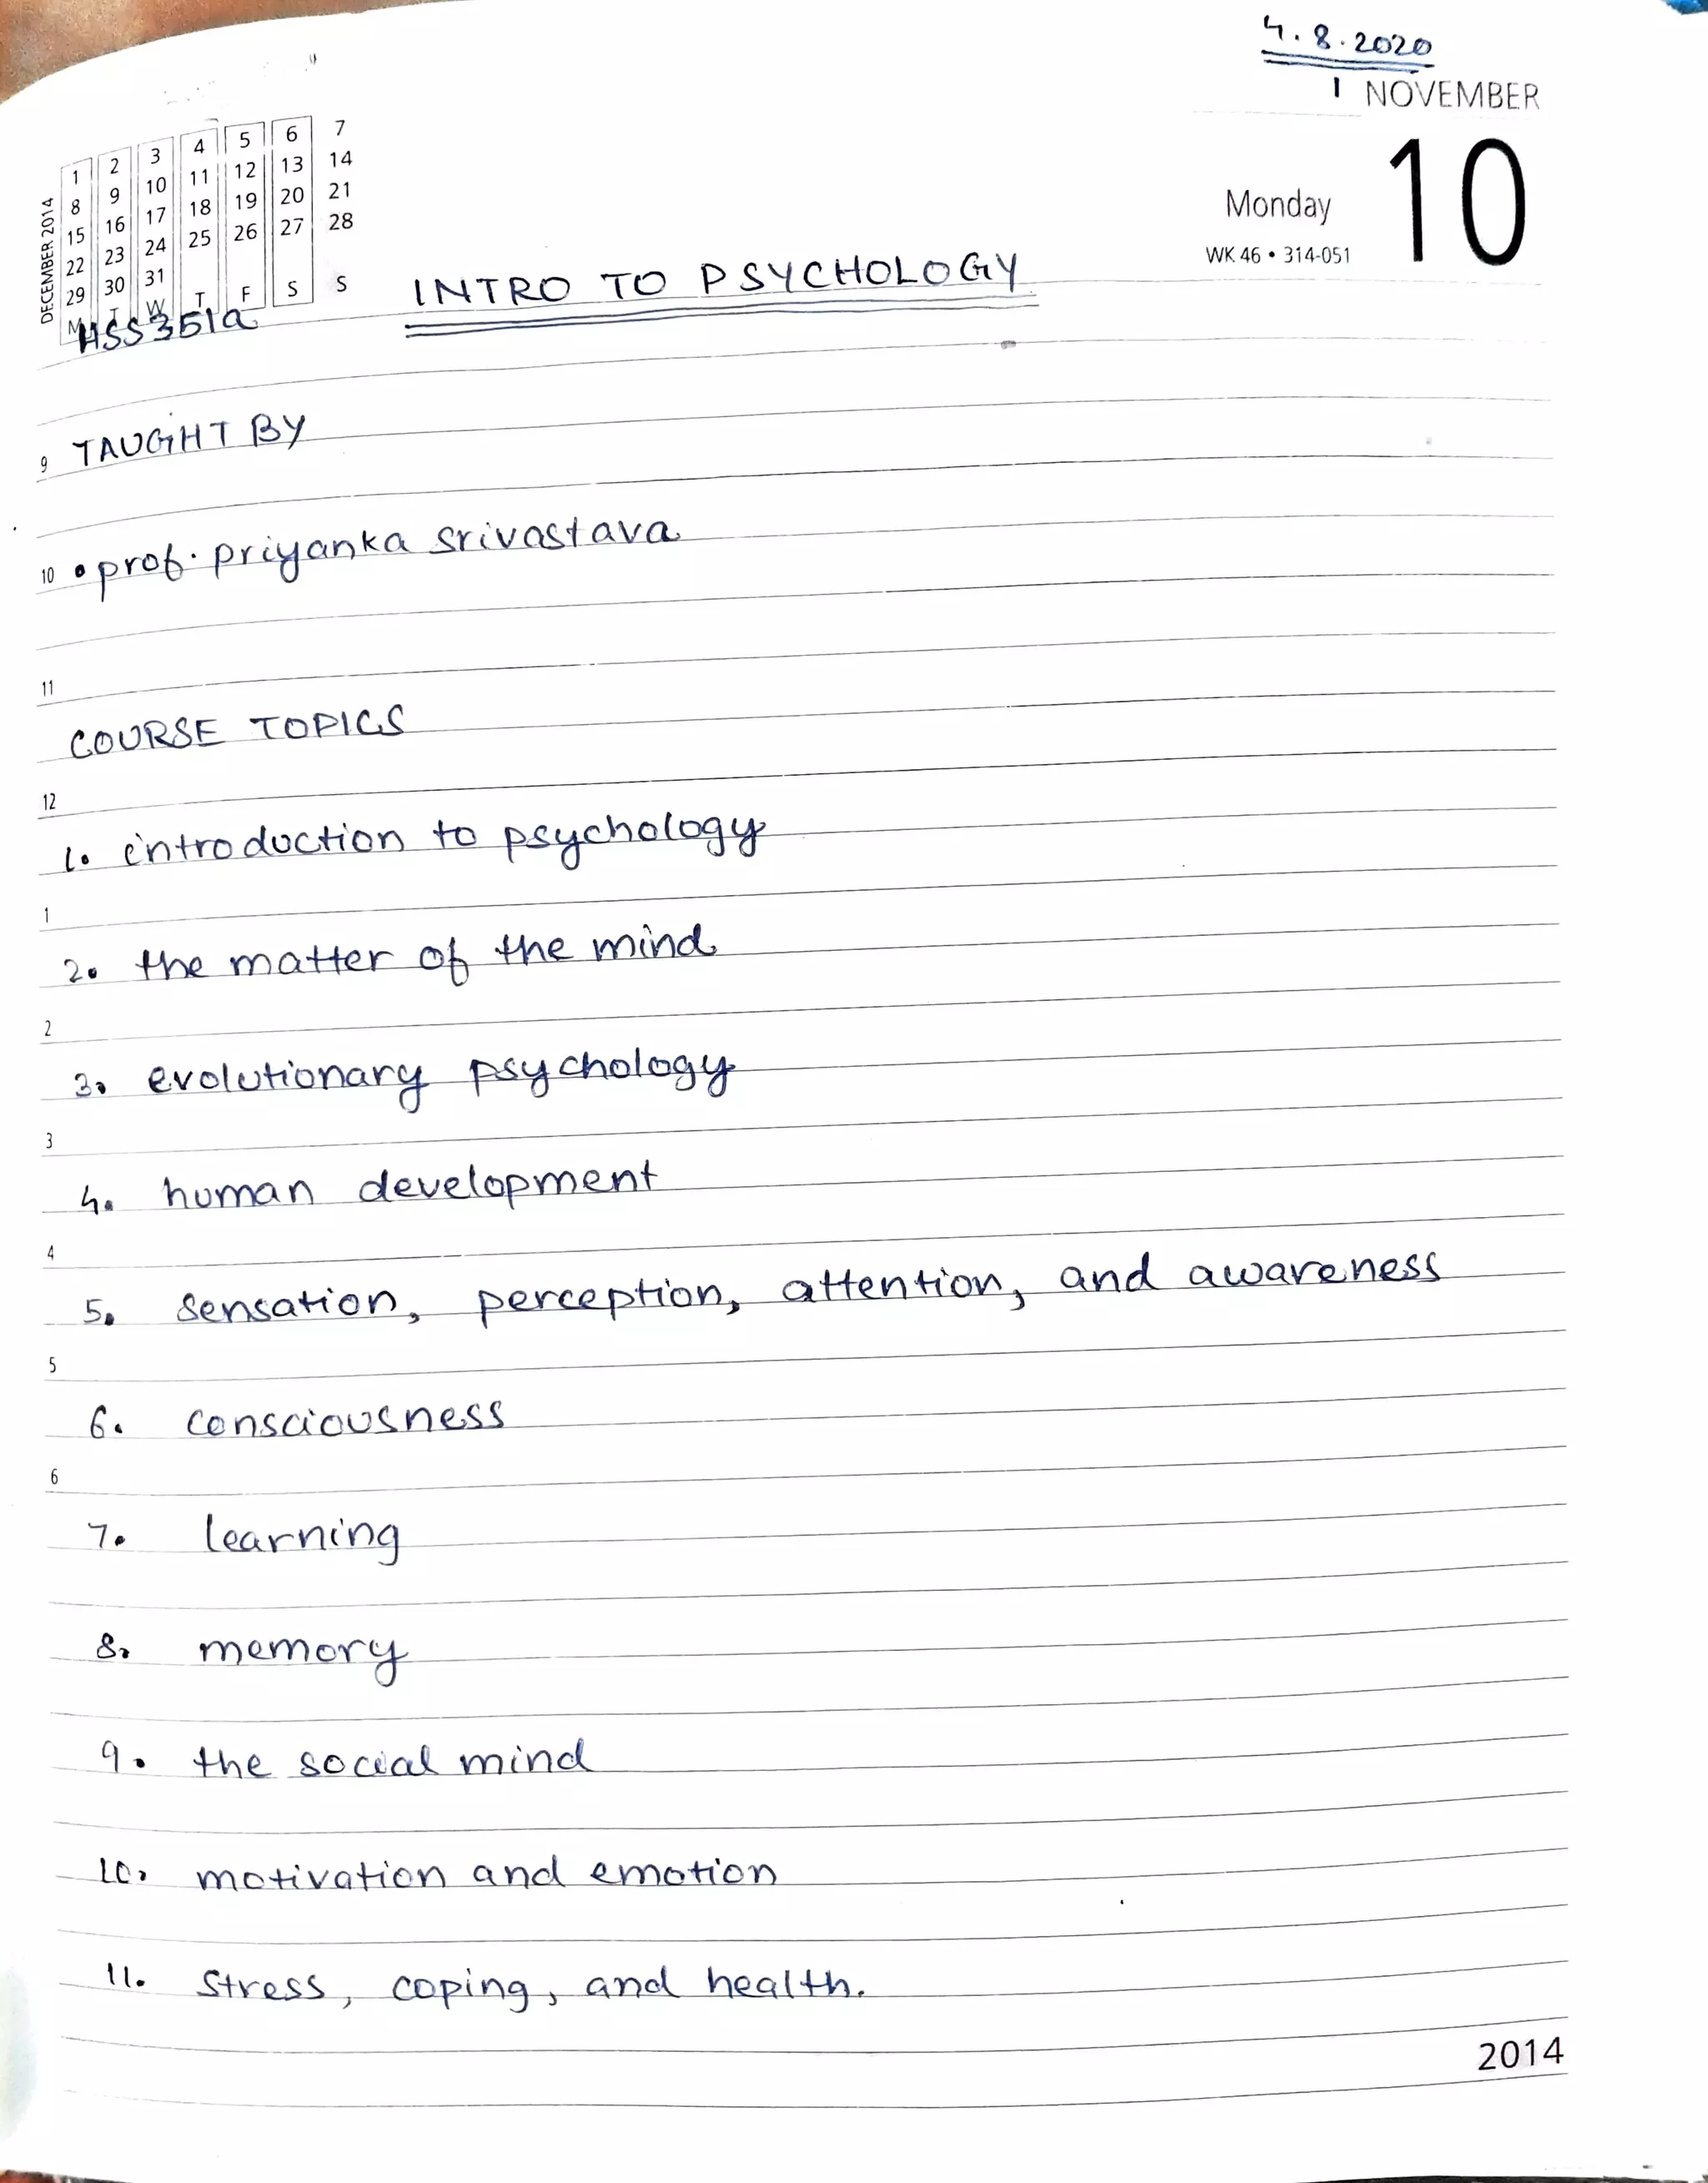 4.8.2020
1 NOVEMBER
10
Monday
WK 46 • 314-051
DECEMBER 2014
1 2 3 4 5 6 7
8 9 10 11 12 13 14
15 16 17 18 19 20 21
22 23 24 25 26 27 28
29 30 31
M T W T F S S
HSS351a
INTRO TO PSYCHOLOGY
9 TAUGHT BY
10 • prof. priyanka srivastava
11
COURSE TOPICS
12
1. introduction to psychology
1
2. the matter of the mind
2
3. evolutionary psychology
3
4. human development
4
5. sensation, perception, attention, and awareness
5
6. consciousness
6
7. learning
8. memory
9. the social mind
10. motivation and emotion
11. stress, coping, and health.
2014